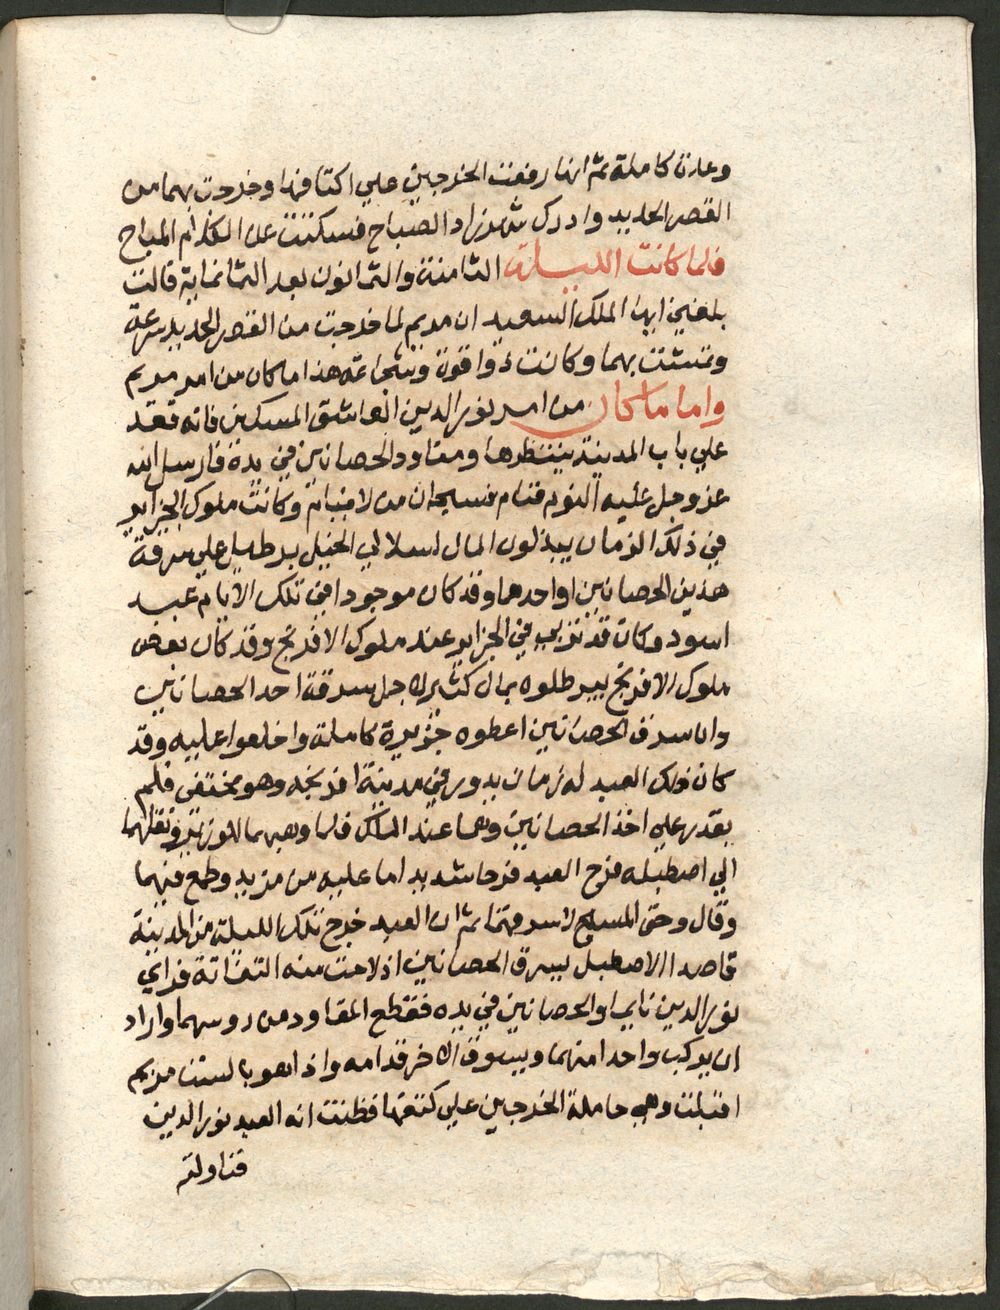 وعدة كاملة ثم انها رفعت الخرجين علي اكتافها وخرجت بهما من
القصر الحديد وادرك شهرزاد الصباح فسكتت عن الكلام المباح
فلما كانت الليلة الثامنة والثمانون بعد الثمانماية قالت
بلغني ايها الملك السعيد ان مريم لما خرجت من القصر الحديد بسرعة
وتمشت بهما وكانت ذوا قوة وشجاعة هذا ما كان من امر مريم
واما ما كان من امر نور الدين العاشق المسكين فانه قعد
علي باب المدينة ينتظرها ومقاود الحصانين في يده فارسل الله
عز وجل عليه النوم فنام فسبحان من لا ينام وكانت ملوك الجزاير
في ذلك الزمان يبذلون المال اسلالي الخيل برطيل علي سرقة
هذين الحصانين او احدهما وقد كان موجودا في تلك الايام عبد
اسود وكان قد تربي في الجزاير عند ملوك الافرنج وقد كان بعض
ملوك الافرنج يبرطلوه بمال كثير لاجل سرقة احد الحصانين
وان سرق الحصانين اعطوه جزيرة كاملة واخلعوا عليه وقد
كان ذلك العبد له زمان يدور في مدينة افرنجه وهو مختفي فلم
يقدر علي اخذ الحصانين وهما عند الملك فلما وهبهما للوزير ونقلهما
الي اصطبله فرح العبد فرحا شديد اما عليه من مزيد وطمع فيهما
وقال وحق المسيح لاسرقهما ثم ان العبد خرج تلك الليلة من المدينة
قاصدا الاصطبل ليسرق الحصانين اذ لاحت منه التفاتة فراي
نور الدين نايما والحصانين في يده فقطع المقاود من روسهما واراد
ان يركب واحدا منهما ويسوق الاخر قدامه واذا هو بالست مريم
اقبلت وهي حاملة الخرجين علي كتفها فظنت انه العبد نور الدين
فناولته